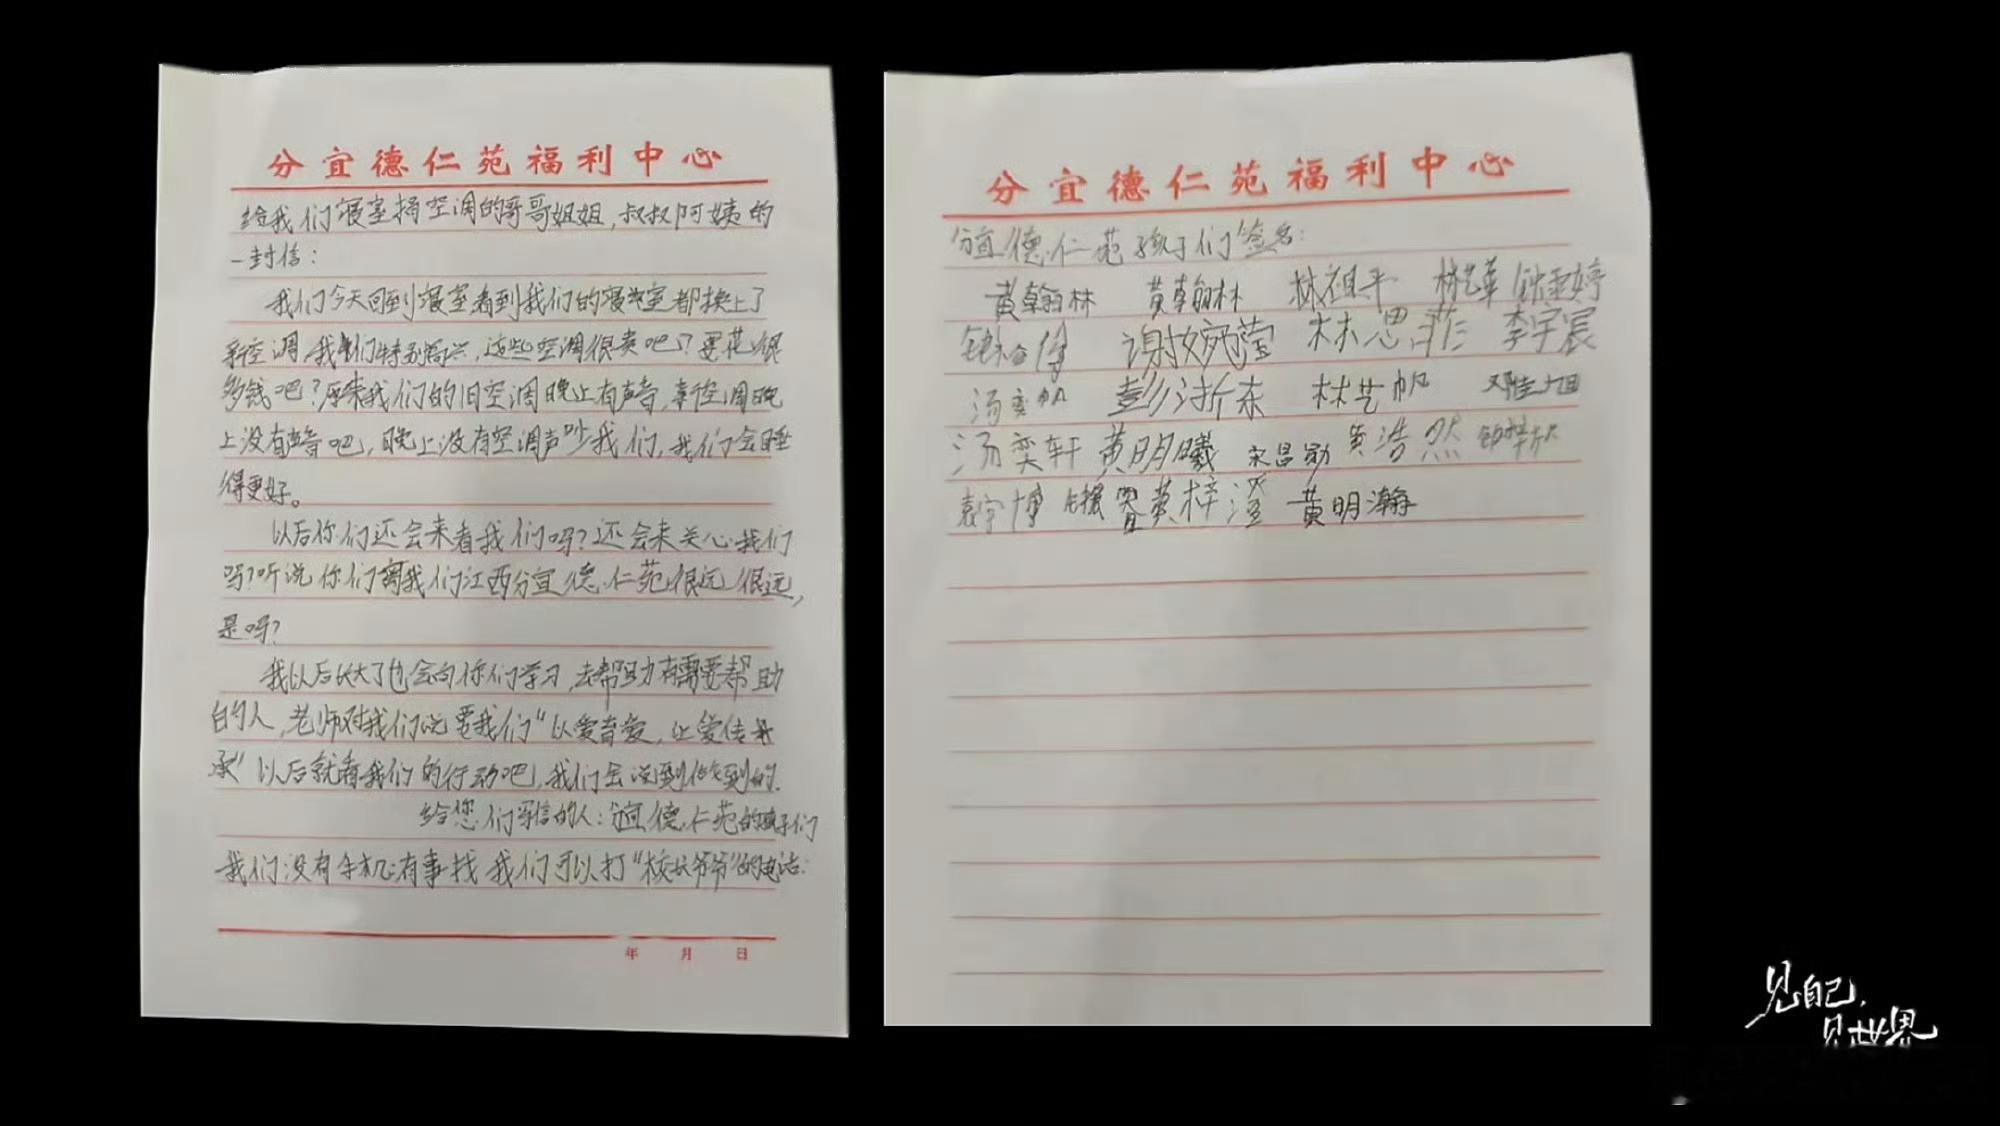 分宜德仁苑福利中心
给我们寝室捐空调的哥哥姐姐,叔叔阿姨的
一封信:
我们今天回到寝室看到我们的寝室都换上了
新空调,我们特别高兴,这些空调很贵吧?要花很
多钱吧?原来我们的旧空调晚上有声音,新空调晚
上没有声音吧,晚上没有空调声吵我们,我们会睡
得更好。
以后你们还会来看我们吗?还会来关心我们
吗?听说你们离我们江西分宜德仁苑很远很远,
是吗?
我以后长大了也会向你们学习,去帮助有需要帮助
的人,老师对我们说要我们“以爱育爱,让爱传
承”以后就看我们的行动吧,我们会说到做到的.
给您们写信的人:分宜德仁苑的孩子们
我们没有手机有事找我们可以打“校长爷爷”的电话:
年 月 日
分宜德仁苑福利中心
分宜德仁苑孩子们签名:
黄翰林 黄翰林 林祖平 林艺苹 婷
谢婉莹 林思菲 李宇宸
汤奕帆 彭浙东 林艺帆 旭
汤奕轩 黄明曦 宋昌勋 黄浩然
袁宇博 黄梓澄 黄明瀚
见自己,
见世界